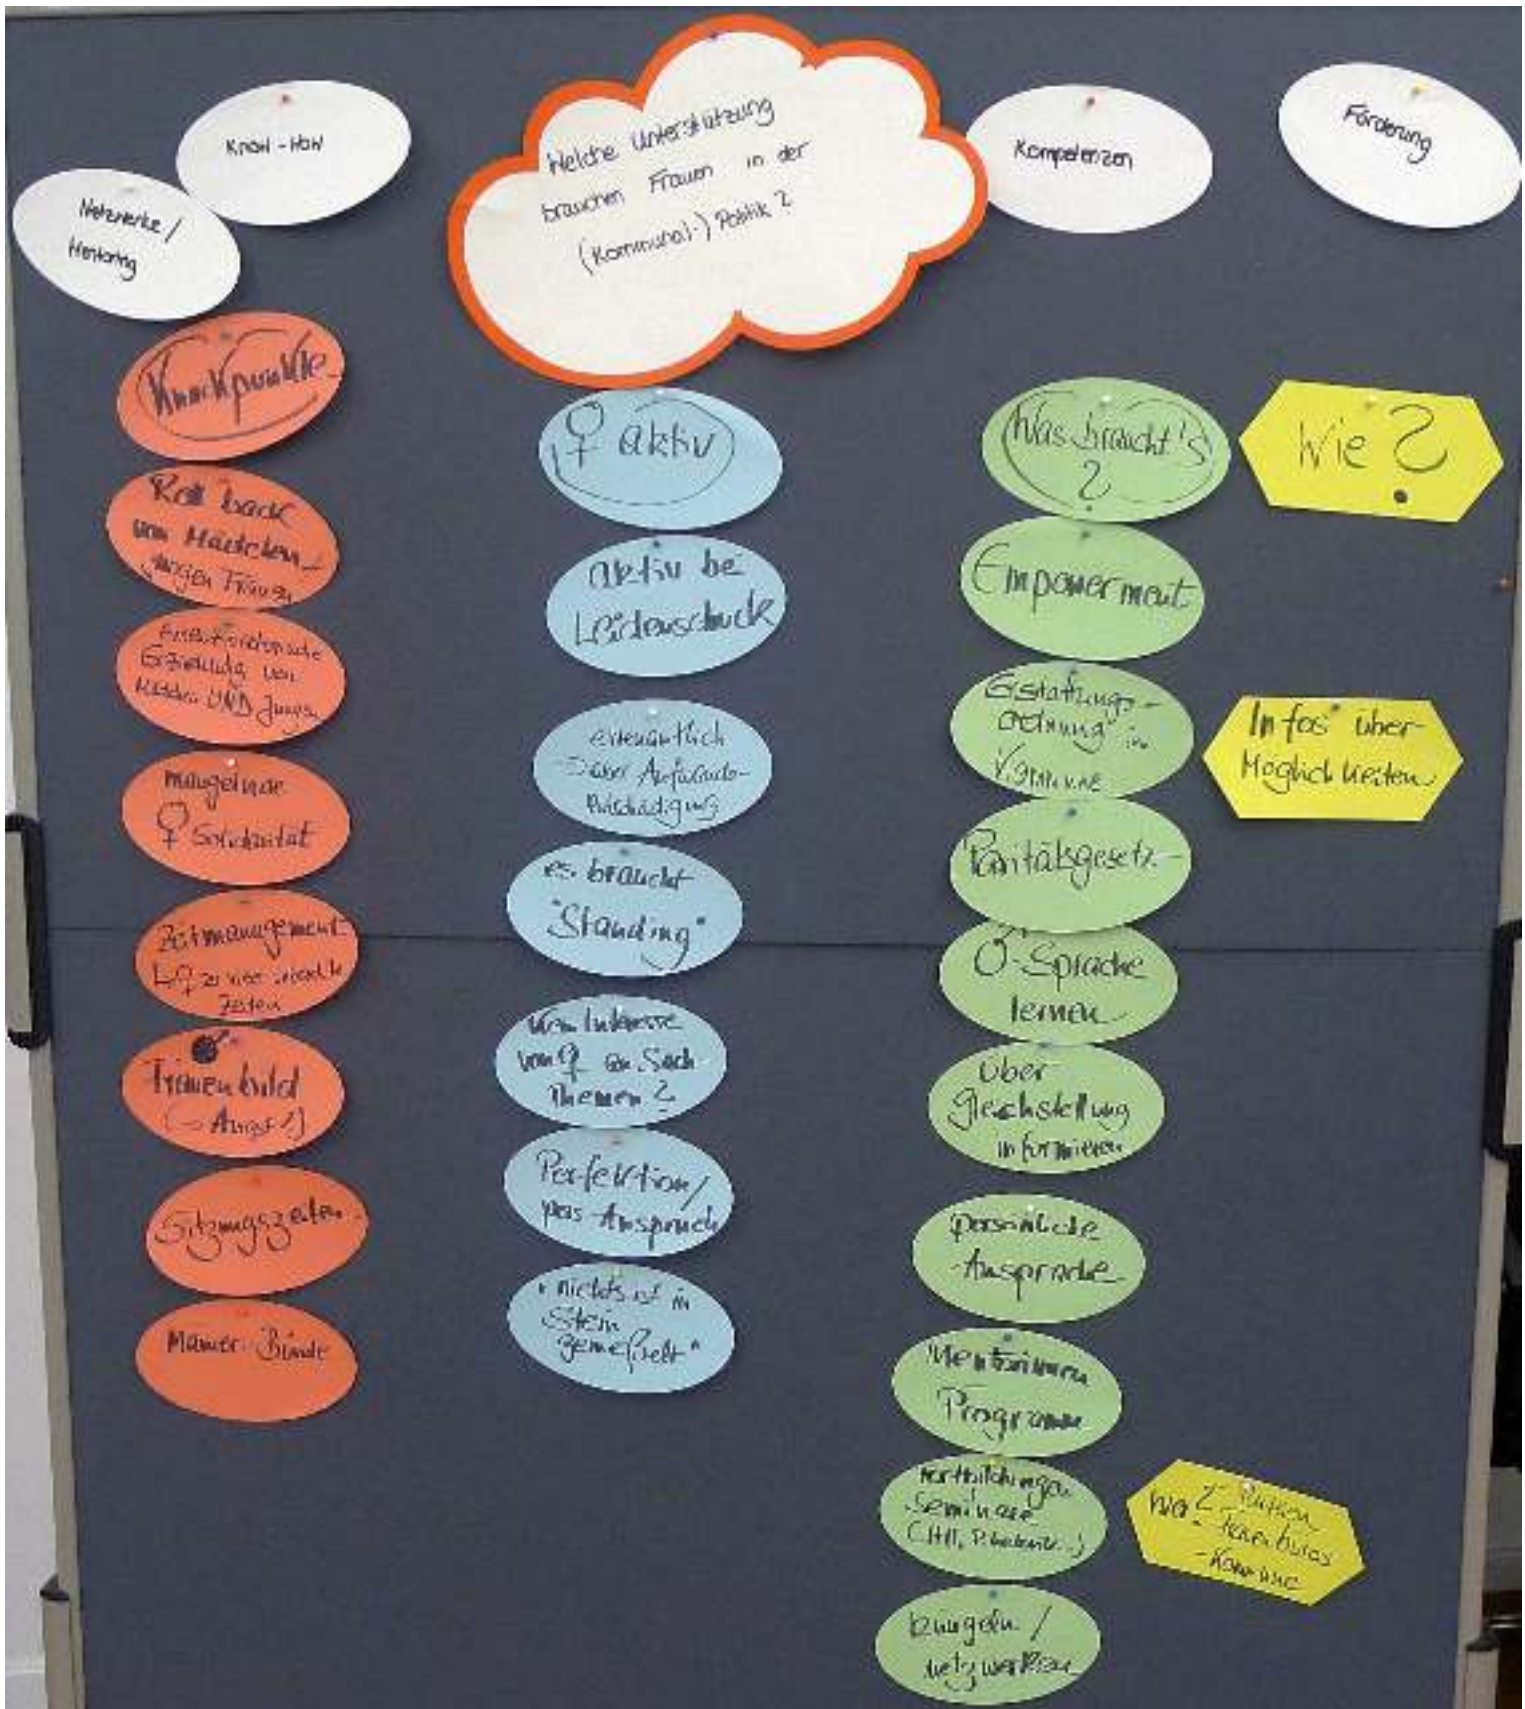 Know-How
Netzwerke /
Mentoring
Welche Unterstützung
brauchen Frauen in der
(Kommunal-) Politik?
Kompetenzen
Förderung
Knackpunkte
Roll back
von Mädchen
jungen Frauen
Erziehung von
Mädchen UND Jungs
mangelnde
♀ Solidarität
Zeitmanagement
↳ ♀ zu viel
Zeiten
Frauenbild
(→ Angst?)
Sitzungszeiten
Männer-Bünde
♀ aktiv
aktiv bei
Leidenschaft
ehrenamtlich
aber Aufwands-
entschädigung
es braucht
"Standing"
kein Interesse
von ♀ an Sach
themen?
Perfektion/
pers. Anspruch
"nichts ist in
Stein
gemeißelt"
Was braucht's
?
Empowerment
ordnung in
Paritätsgesetz
♂-Sprache
lernen
über
Gleichstellung
informieren
persönliche
Ansprache
Mentorinnen
Programm
Fortbildungen
Seminare
klüngeln /
netzwerken
Wie?
Infos über
Möglichkeiten
Wer? - Parteien
- Frauenbüros
- Kommune